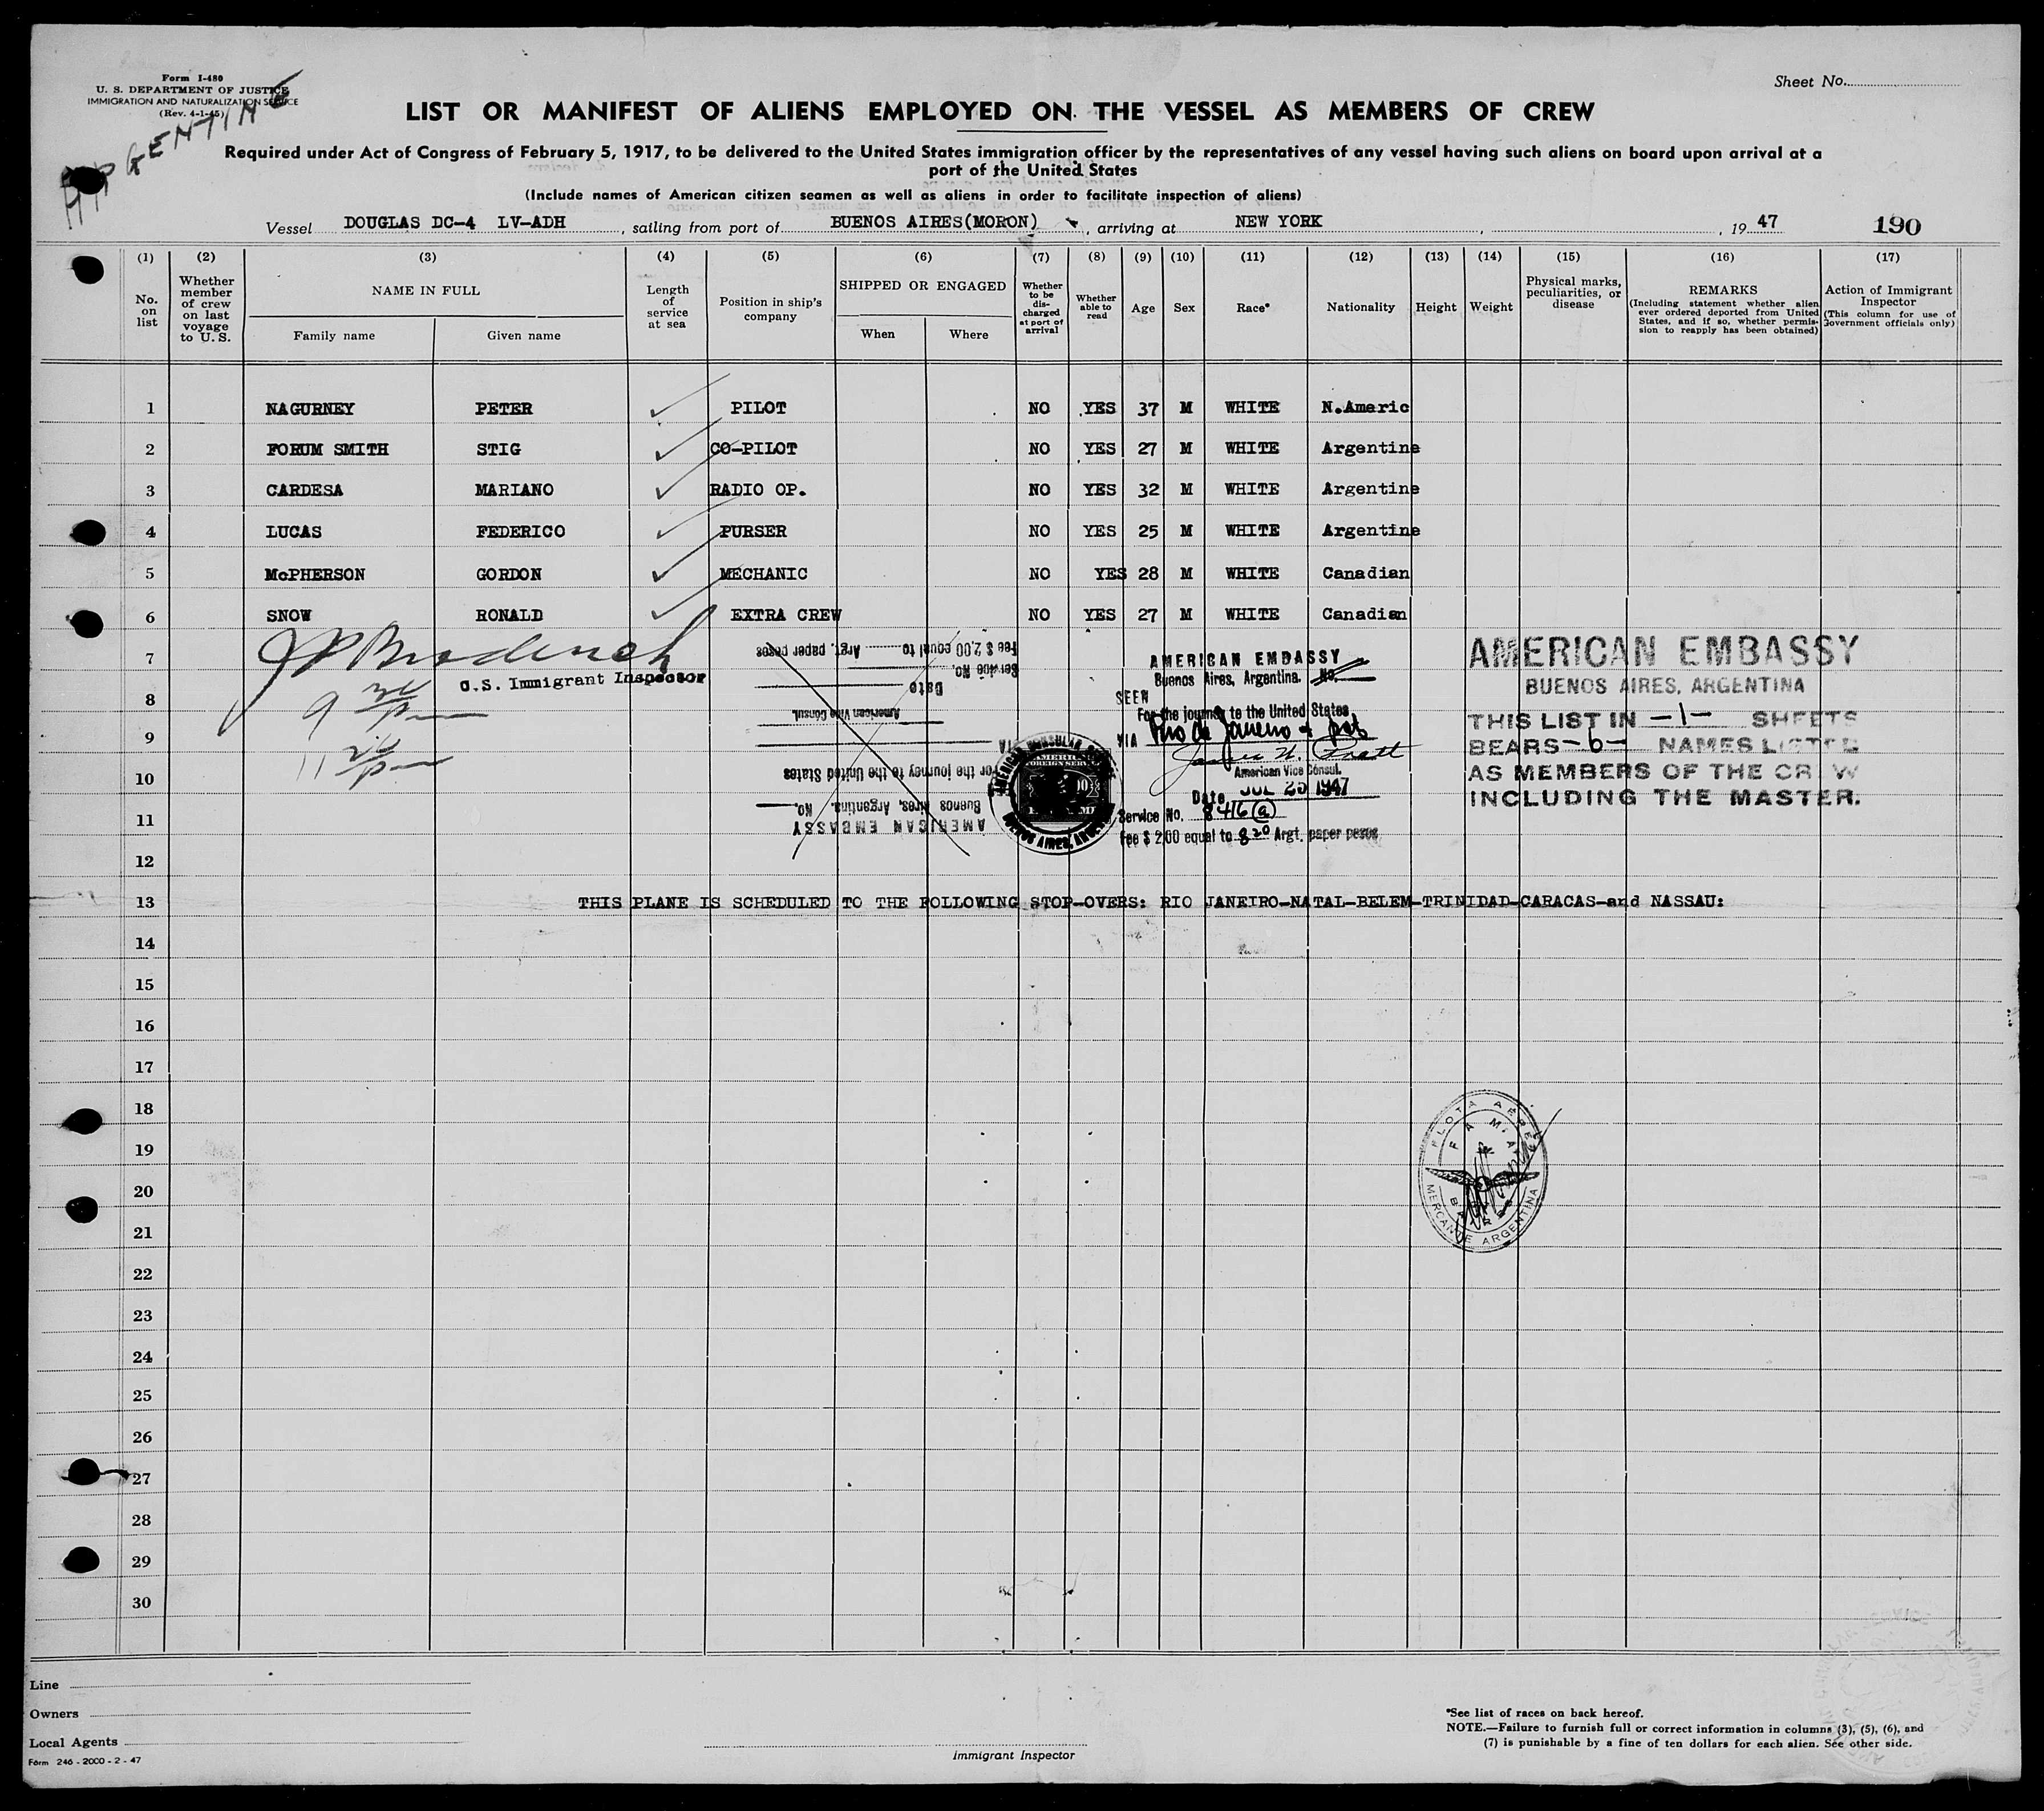 Form I-480
U. S. DEPARTMENT OF JUSTICE
IMMIGRATION AND NATURALIZATION SERVICE
(Rev. 4-1-45)
ARGENTINE
Sheet No.
LIST OR MANIFEST OF ALIENS EMPLOYED ON THE VESSEL AS MEMBERS OF CREW
Required under Act of Congress of February 5, 1917, to be delivered to the United States immigration officer by the representatives of any vessel having such aliens on board upon arrival at a
port of the United States
(Include names of American citizen seamen as well as aliens in order to facilitate inspection of aliens)
Vessel DOUGLAS DC-4 LV-ADH, sailing from port of BUENOS AIRES(MORON), arriving at NEW YORK, , 19 47 190
(1) (2) (3) (4) (5) (6) (7) (8) (9) (10) (11) (12) (13) (14) (15) (16) (17)
No. on list
Whether member of crew on last voyage to U. S.
NAME IN FULL
Family name Given name
Length of service at sea
Position in ship's company
SHIPPED OR ENGAGED
When Where
Whether to be discharged at port of arrival
Whether able to read
Age
Sex
Race*
Nationality
Height
Weight
Physical marks, peculiarities, or disease
REMARKS
(Including statement whether alien ever ordered deported from United States, and if so, whether permission to reapply has been obtained)
Action of Immigrant Inspector
(This column for use of Government officials only)
1 NAGURNEY PETER PILOT NO YES 37 M WHITE N.Americ
2 FORUM SMITH STIG CO-PILOT NO YES 27 M WHITE Argentine
3 CARDESA MARIANO RADIO OP. NO YES 32 M WHITE Argentine
4 LUCAS FEDERICO PURSER NO YES 25 M WHITE Argentine
5 McPHERSON GORDON MECHANIC NO YES 28 M WHITE Canadian
6 SNOW RONALD EXTRA CREW NO YES 27 M WHITE Canadian
7
U.S. Immigrant Inspector
8
9
10
11
12
AMERICAN EMBASSY
Buenos Aires, Argentina. No.
For the journey to the United States
VIA
American Vice Consul.
Date
Service No.
Fee $ 2,00 equal to Argt. paper pesos
AMERICAN CONSULAR SERVICE
BUENOS AIRES, ARGENTINA
AMERICAN EMBASSY
Buenos Aires, Argentina. No.
SEEN
For the journey to the United States
VIA Rio de Janeiro + pts
American Vice Consul.
Date JUL 25 1947
Service No. 8416(a)
Fee $ 2,00 equal to 8 20 Argt. paper pesos
AMERICAN EMBASSY
BUENOS AIRES, ARGENTINA
THIS LIST IN -1- SHEETS
BEARS -6- NAMES LISTED
AS MEMBERS OF THE CREW
INCLUDING THE MASTER.
13 THIS PLANE IS SCHEDULED TO THE FOLLOWING STOP-OVERS: RIO JANEIRO-NATAL-BELEM-TRINIDAD-CARACAS-and NASSAU:
14
15
16
17
18
19
20
21
22
23
24
25
26
27
28
29
30
FLOTA AEREA MERCANTE ARGENTINA
F A M A
Line
Owners
Local Agents
Form 246 - 2000 - 2 - 47
Immigrant Inspector
*See list of races on back hereof.
NOTE.—Failure to furnish full or correct information in columns (3), (5), (6), and
(7) is punishable by a fine of ten dollars for each alien. See other side.